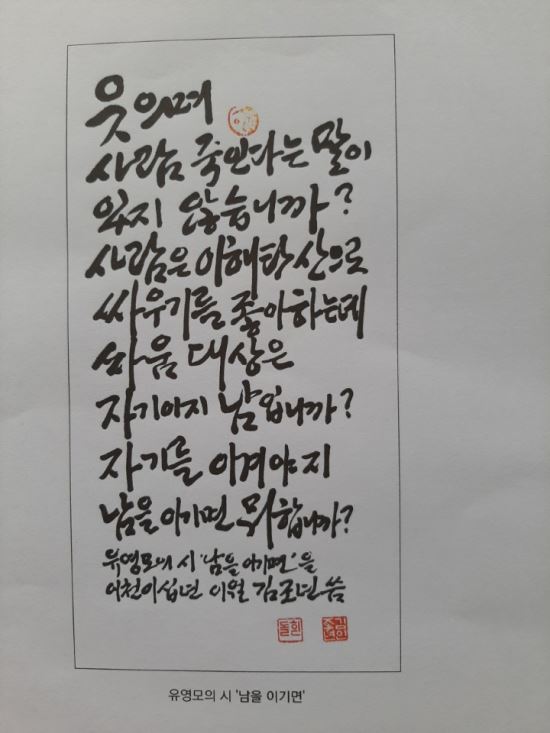 웃으며
사람 죽인다는 말이
있지 않습니까?
사람은 이해타산으로
싸우기를 좋아하는데
싸움 대상은
자기이지 남입니까?
자기를 이겨야지
남을 이기면 뭐합니까?
유영모의 시 '남을 이기면'을
이천이십년 이월 김조년 씀
유영모의 시 '남을 이기면'